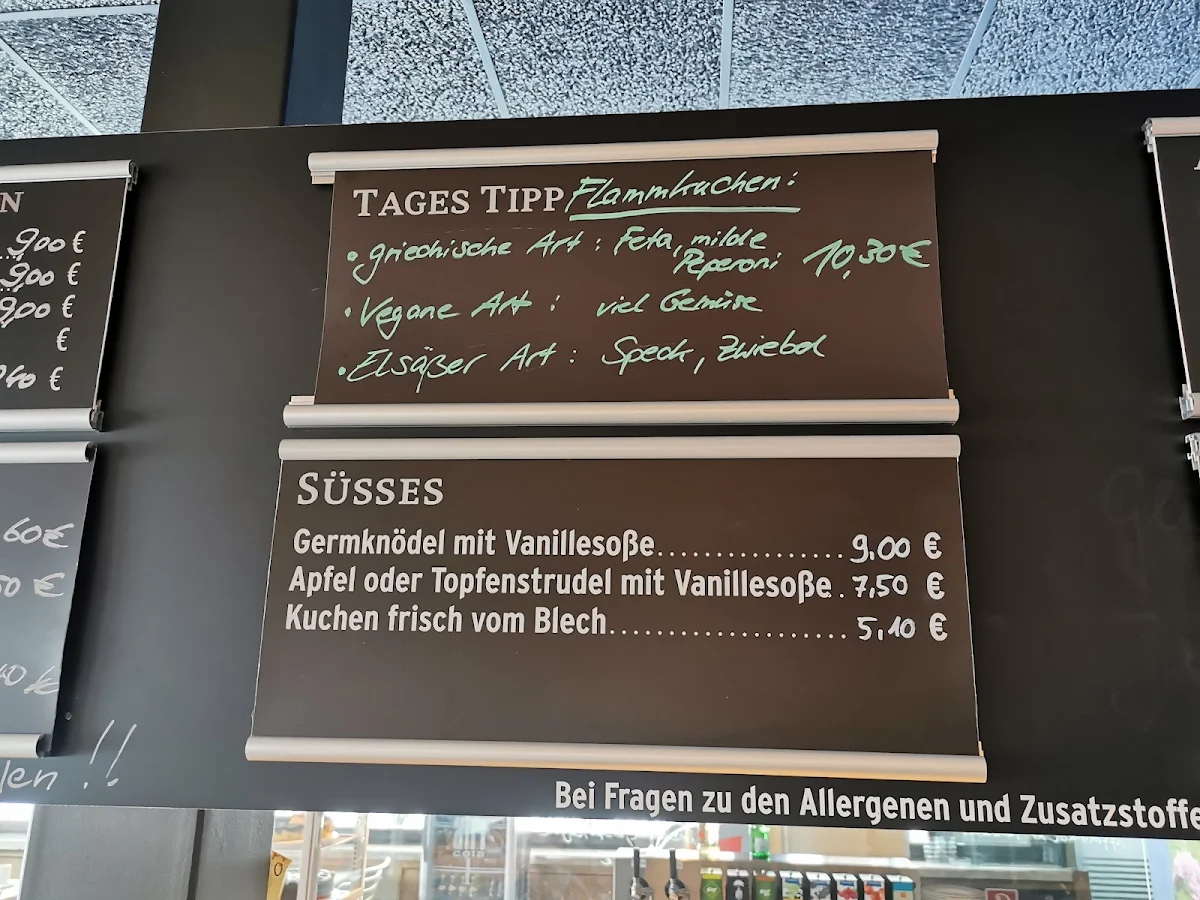 N
9,00 €
9,00 €
9,00 €
€
40 €
60 €
50 €
40 €
!!
TAGES TIPP Flammkuchen:
• griechische Art : Feta, milde
Peperoni 10,30 €
• Vegane Art : viel Gemüse
• Elsäßer Art : Speck, Zwiebel
SÜSSES
Germknödel mit Vanillesoße................ 9,00 €
Apfel oder Topfenstrudel mit Vanillesoße . 7,50 €
Kuchen frisch vom Blech.................... 5,10 €
Bei Fragen zu den Allergenen und Zusatzstoffe